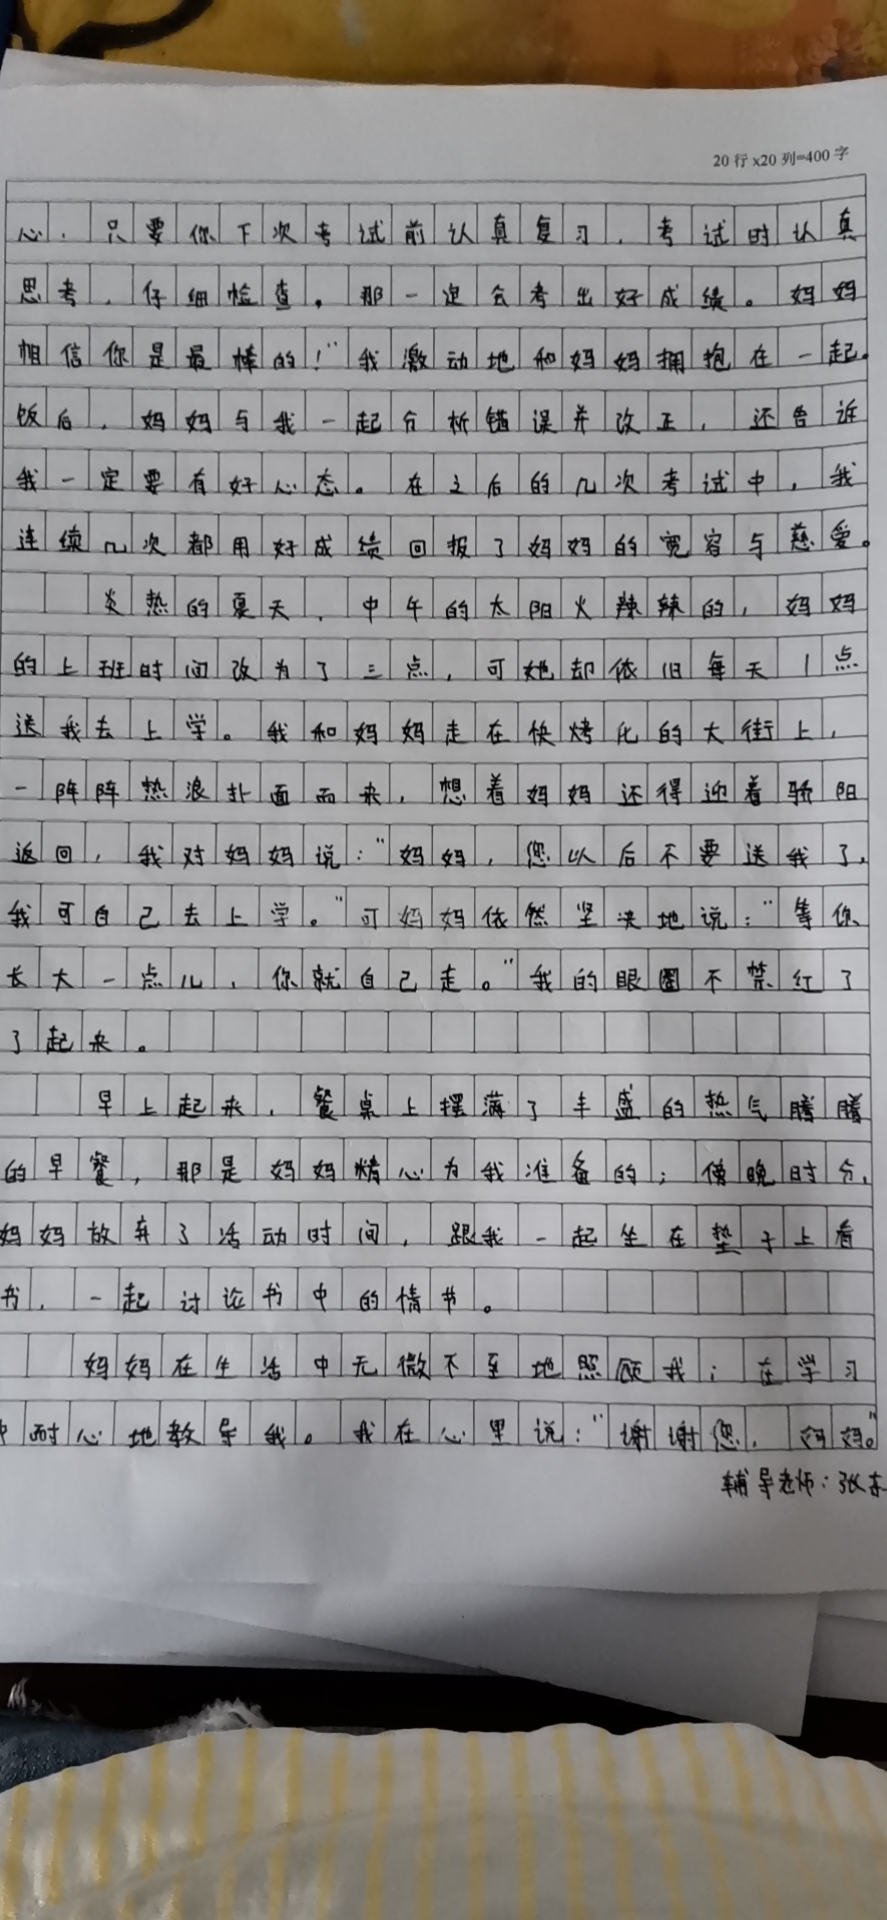 20行x20列=400字
心，只要你下次考试前认真复习，考试时认真
思考，仔细检查，那一定会考出好成绩。妈妈
相信你是最棒的！”我激动地和妈妈拥抱在一起。
饭后，妈妈与我一起分析错误并改正，还告诉
我一定要有好心态。在之后的几次考试中，我
连续几次都用好成绩回报了妈妈的宽容与慈爱。
炎热的夏天，中午的太阳火辣辣的，妈妈
的上班时间改为了三点，可她却依旧每天1点
送我去上学。我和妈妈走在快烤化的大街上，
一阵阵热浪扑面而来，想着妈妈还得迎着骄阳
返回，我对妈妈说：“妈妈，您以后不要送我了，
我可自己去上学。”可妈妈依然坚决地说：“等你
长大一点儿，你就自己走。”我的眼圈不禁红了
了起来。
早上起来，餐桌上摆满了丰盛的热气腾腾
的早餐，那是妈妈精心为我准备的；傍晚时分，
妈妈放弃了活动时间，跟我一起坐在垫子上看
书，一起讨论书中的情节。
妈妈在生活中无微不至地照顾我；在学习
中耐心地教导我。我在心里说：“谢谢您，妈妈。”
辅导老师：张东